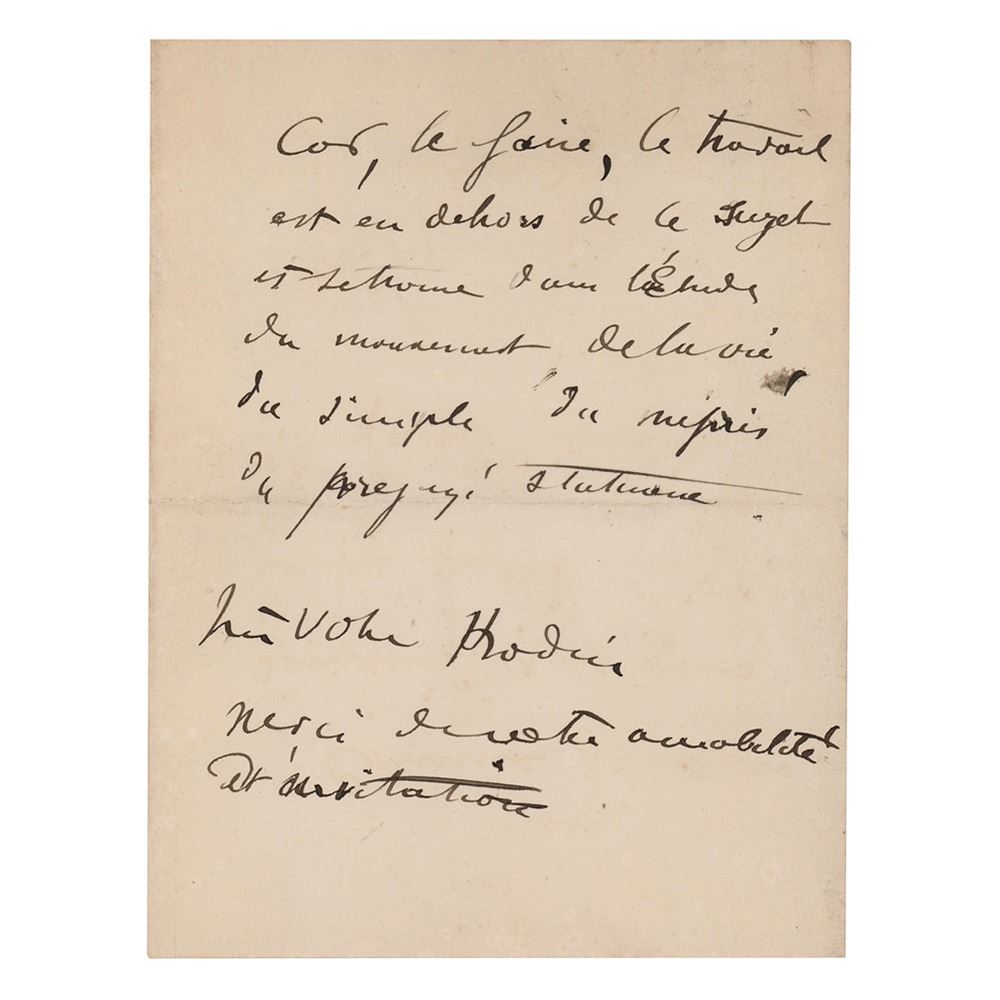 Car, le faire, le travail
est en dehors de le sujet
et se trouve dans l'Étude
du mouvement de la vie
du simple du mépris
du préjugé statuaire
votre Rodin
Merci de votre amabilité
Et invitation